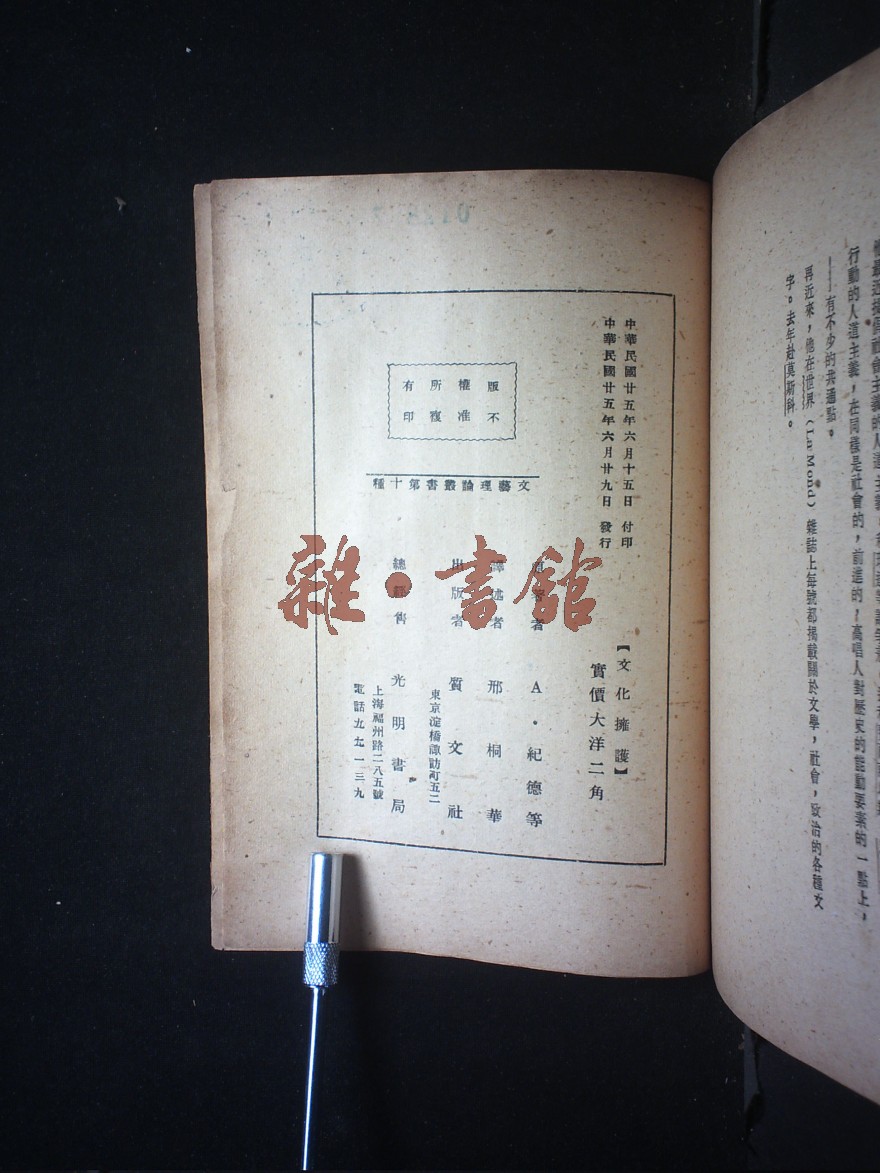 行動的人道主義,在同樣是社會的,前進的,高唱人對歷史的能動要素的一點上,
——有不少的共通點。
再近來,他在世界(Le Mond)雜誌上每號都揭載關於文學,社會,政治的各種文
字。去年赴莫斯科。
中華民國廿五年六月十五日 付印
中華民國廿五年六月廿九日 發行
版權所有
不准複印
文藝理論叢書第十種
【文化擁護】
實價大洋二角
A・紀德等
譯述者 邢桐華
出版者 質文社
東京淀橋諏訪町五二
總經售 光明書局
上海福州路二八五號
電話九五一三九
雜·書館